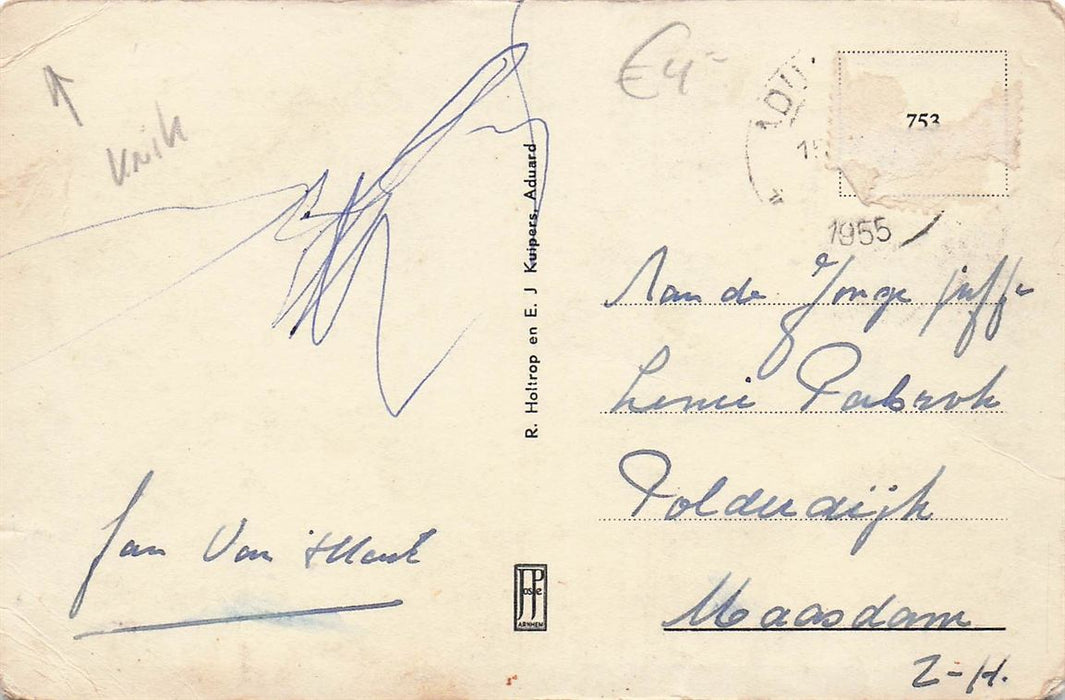 knik
€4-
ADU
15
1955
753
R. Holtrop en E. J Kuipers, Aduard
Aan de Jonge juff-
Lenie Pabrok
Polderdijk
Maasdam
Z-H.
Jan Van 't
JosPé
ARNHEM